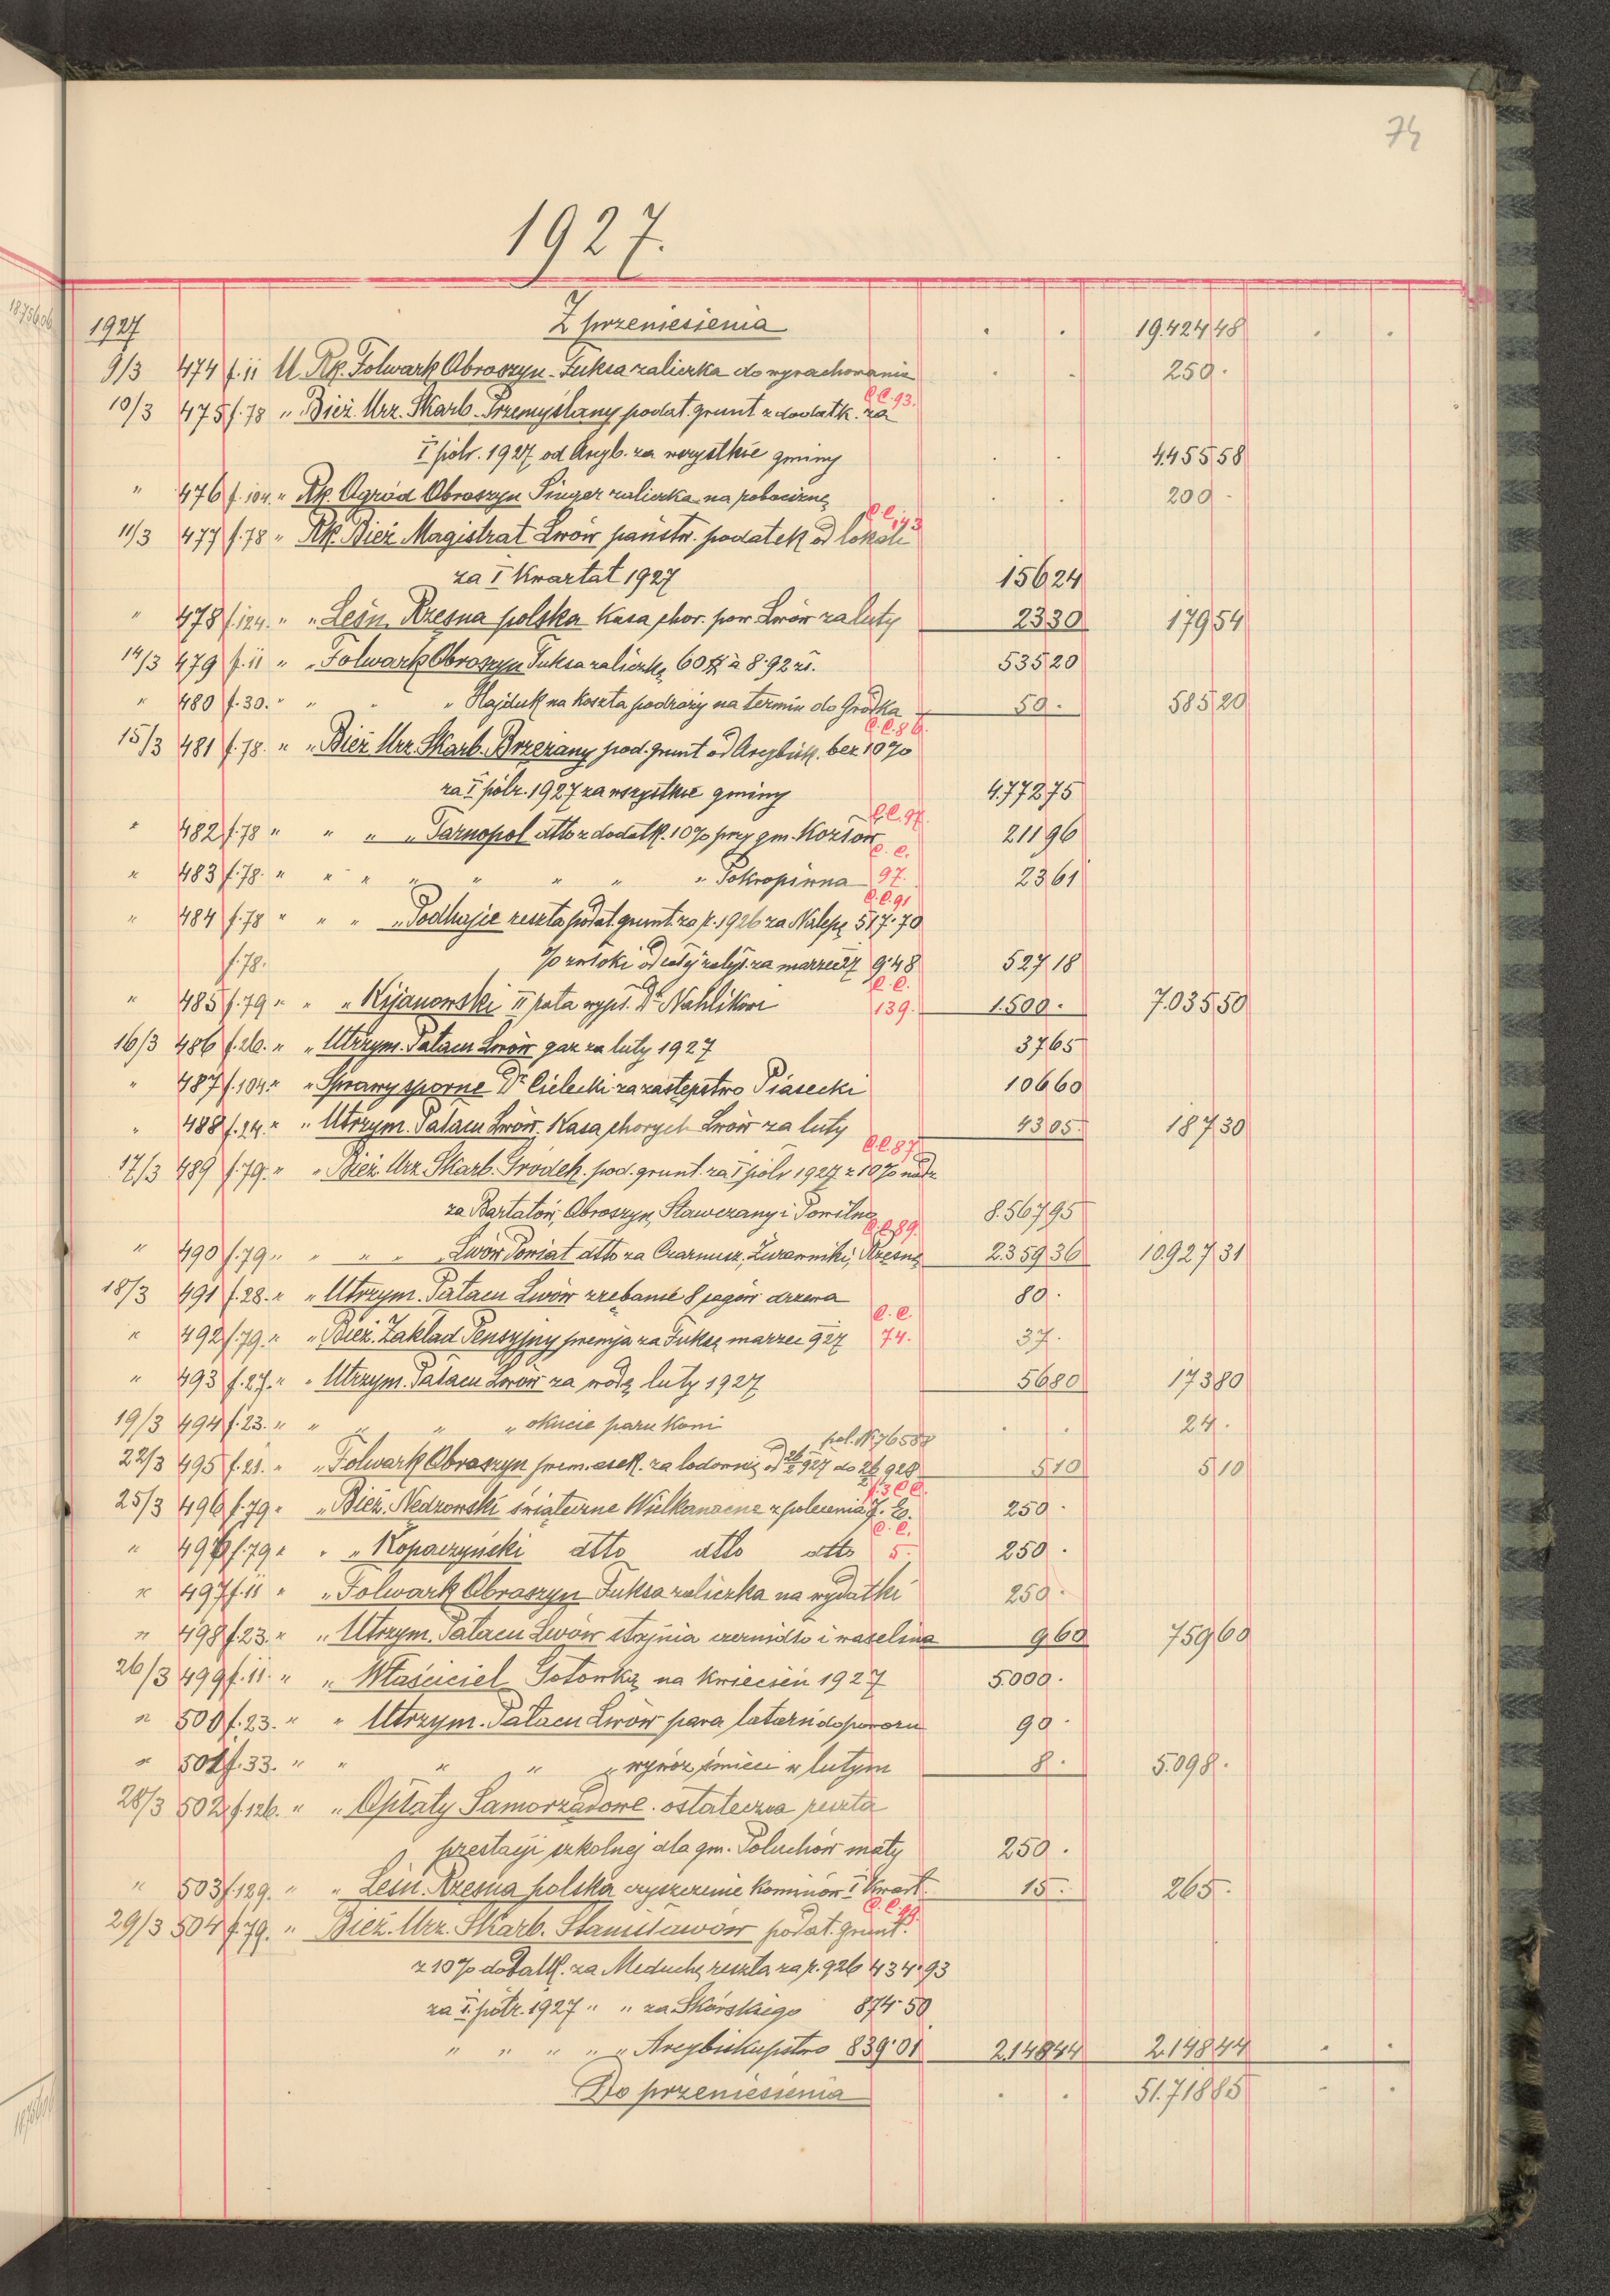 74
1927.
1927 Z przeniesienia . . 19.424 48 . .
9/3 474 f. 11 U Rk. Folwark Obroszyn - Fuksa zaliczka do wyrachowania . . 250 .
C.C. 93.
10/3 475 f. 78 " Bież. Urz. Skarb. Przemyślany podat. grunt z dodatk. za
I półr. 1927 od Arcyb. za wszystkie gminy . . 4.455 58
" 476 f. 104. " Rk. Ogród Obroszyn Singer zaliczka na robociznę . . 200 -
C.C. 143
11/3 477 f. 78 " Rk. Bież Magistrat Lwów państw. podatek od lokali
za I Kwartał 1927 156 24
" 478 f. 124. " " Leśn. Rzesna polska Kasa chor. pow. Lwów za luty 23 30 179 54
14/3 479 f. 11 " " Folwark Obroszyn Fuksa zaliczkę 60 $ à 8.92 zł. 535 20
" 480 f. 30. " " " " Hajduk na koszta podróży na termin do Gródka 50 . 585 20
C.C. 86.
15/3 481 f. 78. " " Bież Urz. Skarb. Brzeżany pod. grunt od Arcybisk. bez 10%
za I półr. 1927 za wszystkie gminy 4.772 75
C.C. 97.
" 482 f. 78 " " " " Tarnopol dtto z dodatk. 10% przy gm. Kozłów 211 96
C.C.
" 483 f. 78. " " " " " " " " Pokropiwna 97. 23 61
C.C. 91
" 484 f. 78 " " " " Podhajce reszta podat. grunt. za r. 1926 za Nalepę 517.70
f. 78. % zwłoki od całej należ. za marzec 27 9.48 527 18
C.C.
" 485 f. 79 " " " Kijanowski II rata wypł. Dr. Nahlikowi 139. 1.500 . 7.035 50
16/3 486 f. 26. " " Utrzym. Pałacu Lwów gaz za luty 1927 37 65
" 487 f. 104. " " Sprawy sporne Dr. Cielecki za zastępstwo Piasecki 106 60
" 488 f. 24. " " Utrzym. Pałacu Lwów. Kasa chorych Lwów za luty 43 05 187 30
C.C. 87
17/3 489 f. 79. " " Bież. Urz. Skarb. Gródek. pod. grunt. za I półr 1927 z 10% nadz
za Bartatów, Obroszyn, Stawczany i Powitno 8.567 95
C.C. 89.
" 490 f. 79. " " " " Lwów Powiat dtto za Czarnusz, Żurawniki, Rzęsnę 2.359 36 10.927 31
18/3 491 f. 28. " " Utrzym. Pałacu Lwów zrębanie 8 sągów drzewa 80 .
C.C.
" 492 f. 79. " " Bież. Zakład Pensyjny premja za Fuksę marzec 927 74. 37 .
" 493 f. 27. " " Utrzym. Pałacu Lwów za wodę luty 1927 56 80 173 80
19/3 494 f. 23. " " " " " okucie paru koni . . 24 .
pol. № 76588
22/3 495 f. 21. " " Folwark Obroszyn prem. asek. za lodownię od 26/2 927 do 26/2 928 5 10 5 10
f. 3 C.C.
25/3 496 f. 79 " " Bież. Nedzowski świąteczne Wielkanocne z polecenia J. E. 250 .
C.C.
" 496 f. 79 " " " Kopaczyński dtto dtto dtto 5. 250 .
" 497 f. 11 " " Folwark Obroszyn Fuksa zaliczka na wydatki 250 .
" 498 f. 23. " " Utrzym. Pałacu Lwów stajnia czernidło i waselina 9 60 759 60
26/3 499 f. 11. " " Właściciel Gotówką na kwiecień 1927 5.000 .
" 500 f. 23. " " Utrzym. Pałacu Lwów para latarń do powozu 90 .
" 501 f. 33. " " " " " wywóz śmieci w lutym 8 . 5.098 .
28/3 502 f. 126. " " Opłaty Samorządowe. ostateczna reszta
prestacyi szkolnej dla gm. Poluchów mały 250 .
" 503 f. 129. " " Leśn. Rzesna polska czyszczenie kominów I Kwart. 15 . 265 .
C.C. 99.
29/3 504 f. 79. " Bież. Urz. Skarb. Stanisławów podat. grunt.
z 10% dodatk. za Meduchę reszta za r. 926 434.93
za I. półr. 1927 " " za Skórskiego 874.50
" " " " " Arcybiskupstwo 839.01 2.148 44 2.148 44 . .
Do przeniesienia . . 51.718 85 . .